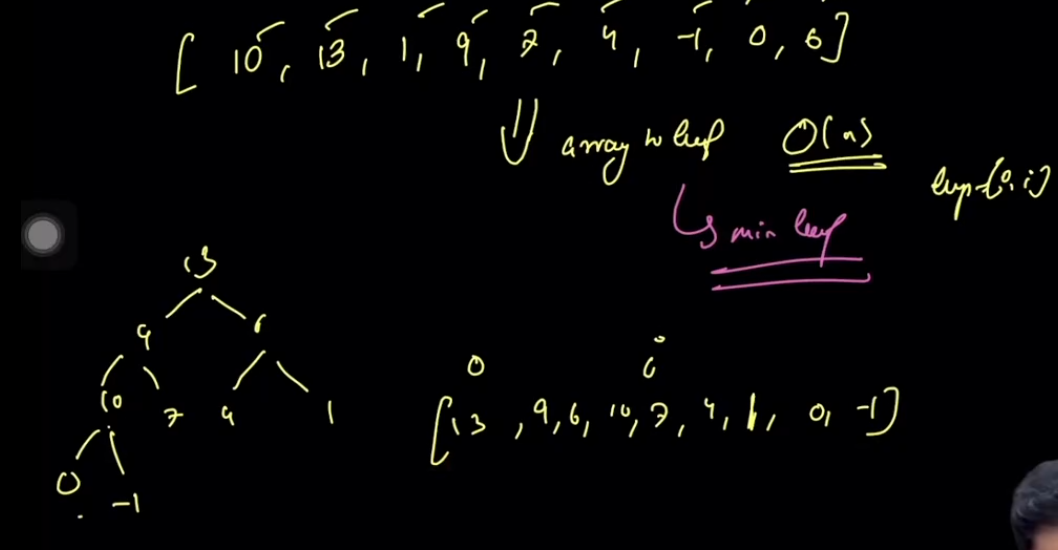 [ 10, 13, 1, 9, 7, 4, -1, 0, 6]
array to heap O(n)
heap-[0, i]
↳ min heap
13
9 6
10 7 4 1
0 -1
0 i
[13, 9, 6, 10, 7, 4, 1, 0, -1]